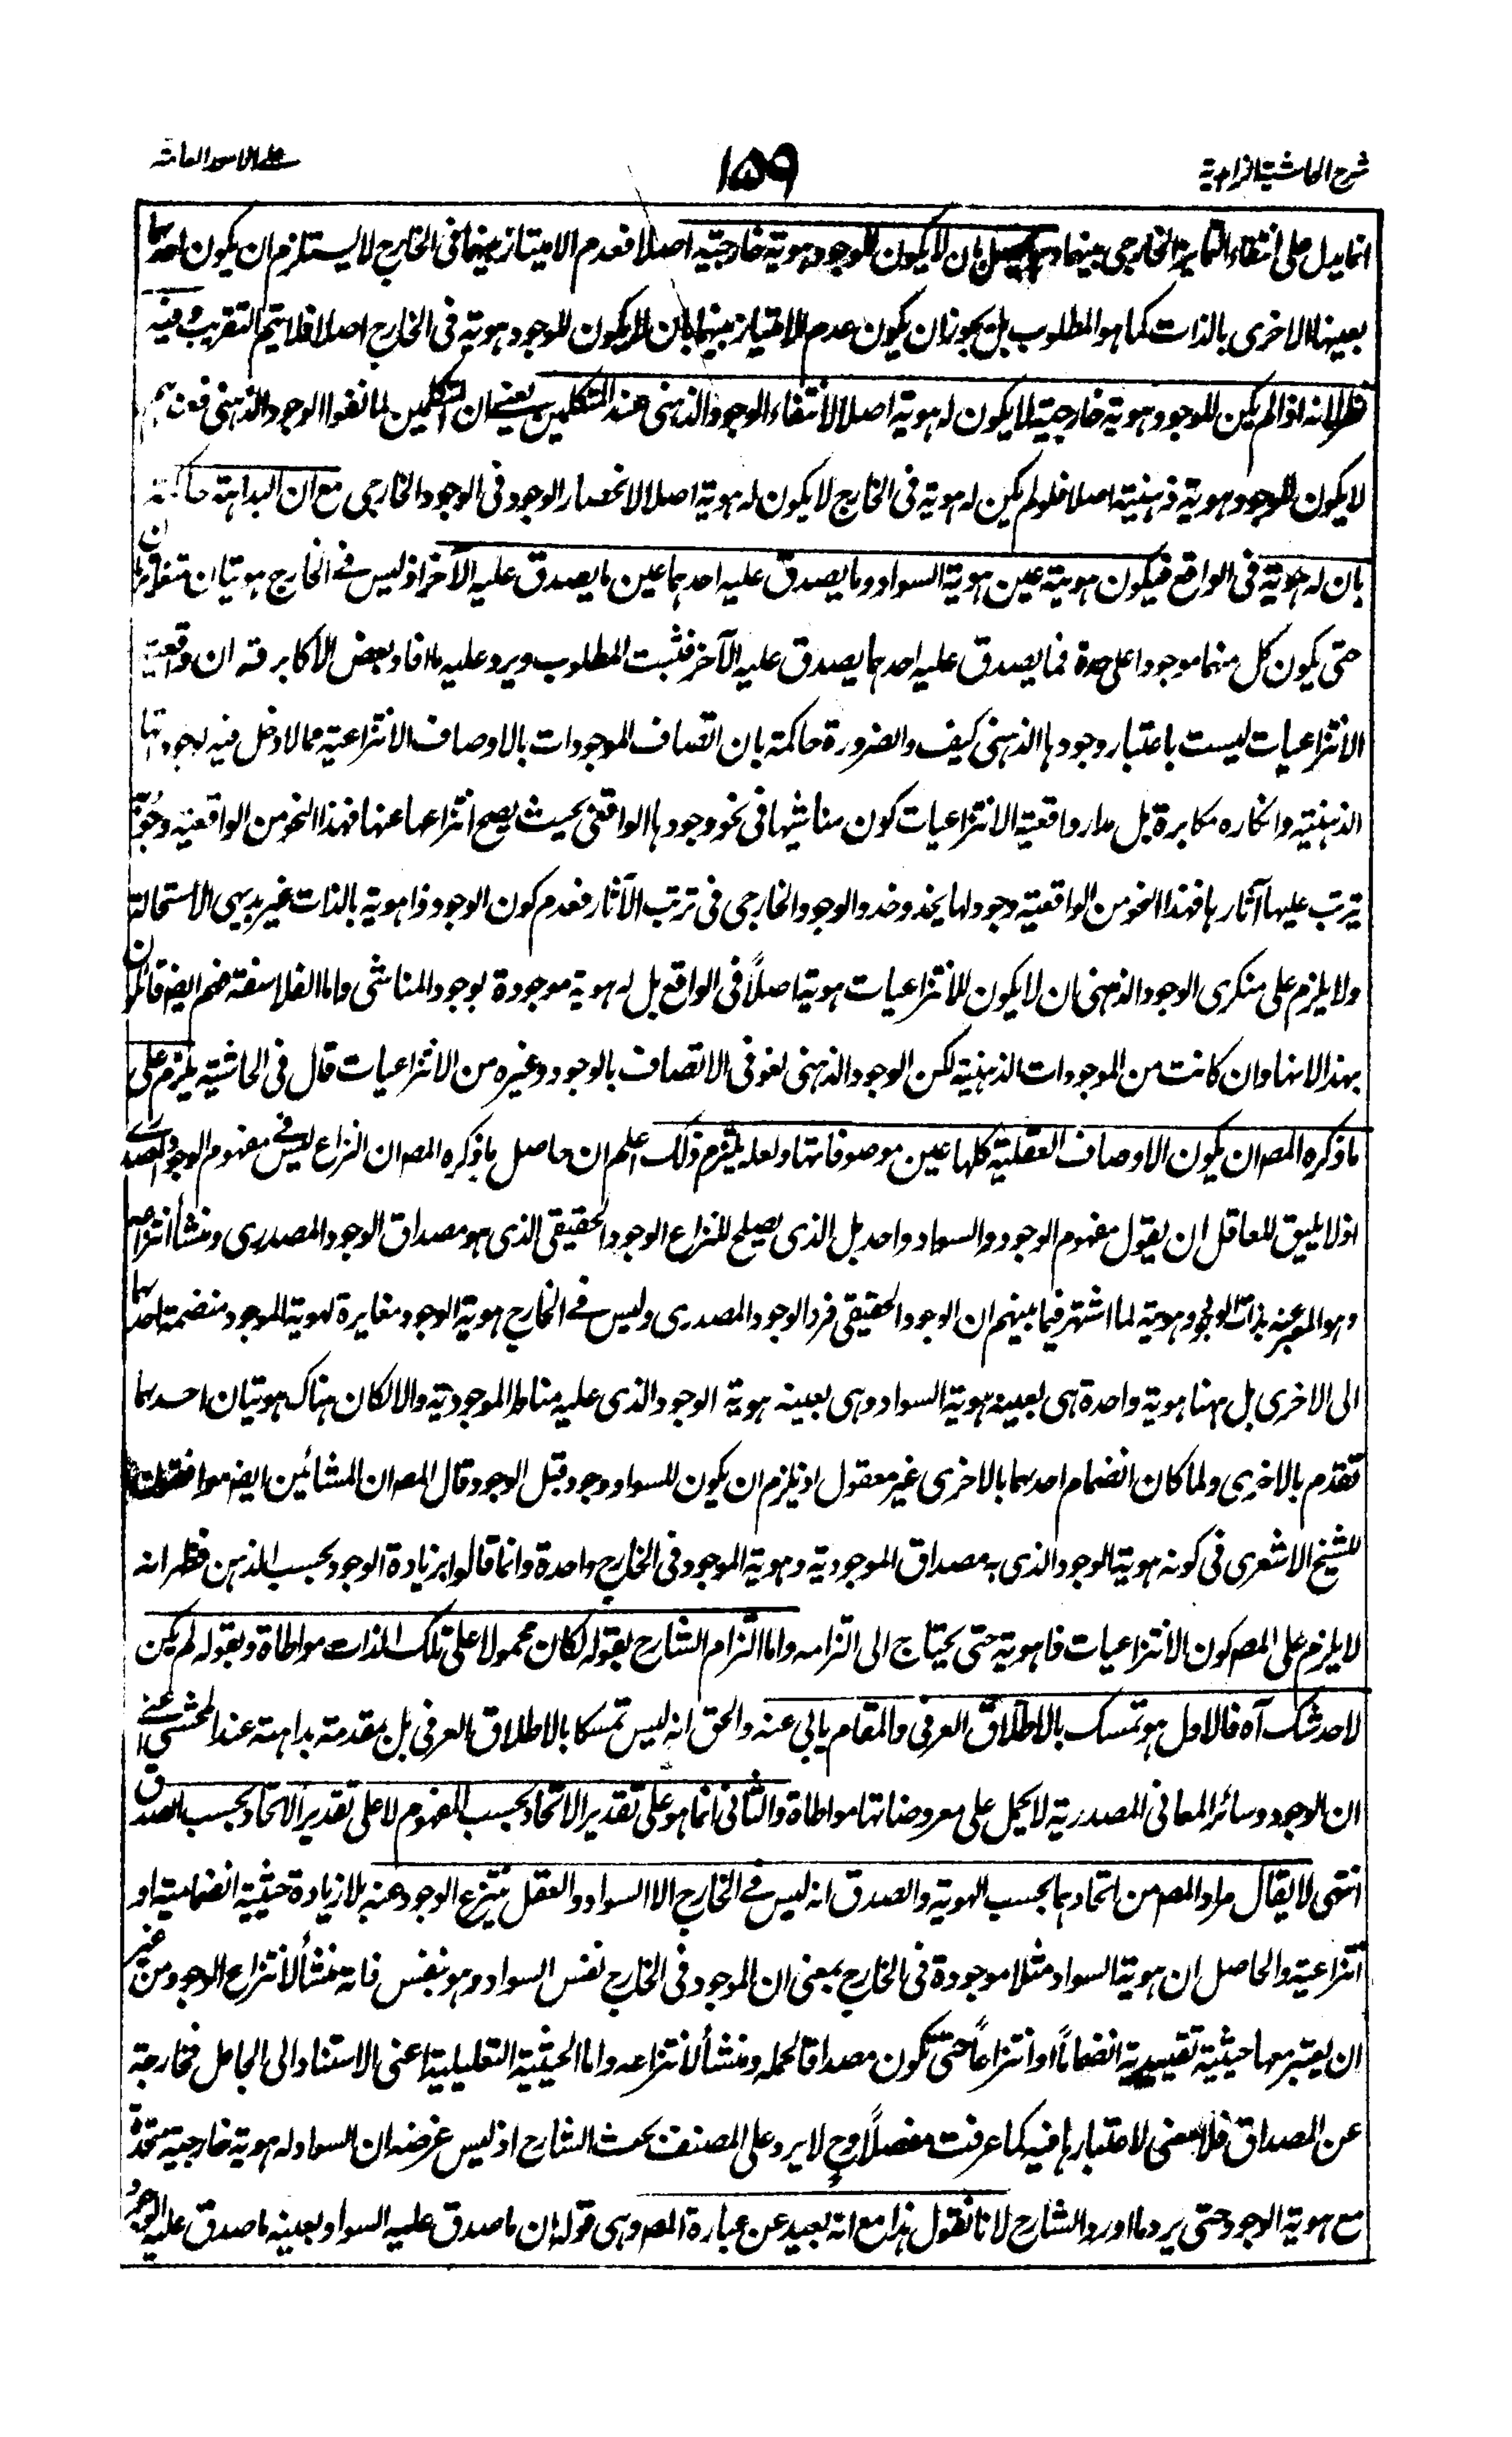 شرح الحاشية الزاهدية
١٥٩
على الامور العامة
انما يدل على انتفاء التمايز الخارجي بينهما بان لا يكون للوجود هوية خارجية اصلا فعدم الامتياز بينهما فى الخارج لا يستلزم ان يكون احدهما
بعينها الاخرى بالذات كما هو المطلوب بل يجوز ان يكون عدم الامتياز بينهما بان لا يكون للوجود هوية فى الخارج اصلا فلا يتم التقريب وفيه
نظر لانه اذا لم يكن للوجود هوية خارجية لا يكون له هوية اصلا لانتفاء الوجود الذهنى عند المتكلمين يعنى ان المتكلمين لما نفوا الوجود الذهنى فعندهم
لا يكون للوجود هوية ذهنية اصلا فلو لم يكن له هوية فى الخارج لا يكون له هوية اصلا لانحصار الوجود فى الوجود الخارجى مع ان البداهة حاكمة
بان له هوية فى الواقع فيكون هويته عين هوية السواد وما يصدق عليه احدهما عين ما يصدق عليه الآخر اذ ليس فى الخارج هويتان متغايرتان
حتى يكون كل منهما موجودا على حدة فما يصدق عليه احدهما يصدق عليه الآخر فثبت المطلوب ويرد عليه ما افاد بعض الاكابر قه ان واقعية
الانتزاعيات ليست باعتبار وجودها الذهنى كيف والضرورة حاكمة بان اتصاف الموجودات بالاوصاف الانتزاعية مما لا دخل فيه لوجوداتها
الذهنية وانكاره مكابرة بل مدار واقعية الانتزاعيات كون مناشيها فى نحو وجودها الواقعى بحيث يصح انتزاعها عنها فهذا النحو من الواقعية
يترتب عليها آثارها فهذا النحو من الواقعية وجود لها يحذو حذو الوجود الخارجى فى ترتب الآثار فعدم كون الوجود ذا هوية بالذات غير بديهى الاستحالة
ولا يلزم على منكرى الوجود الذهنى ان لا يكون للانتزاعيات هوية اصلاً فى الواقع بل له هوية موجودة بوجود المناشى واما الفلاسفة فهم ايضا قائلون
بهذا لانها وان كانت من الموجودات الذهنية لكن الوجود الذهنى لغو فى الاتصاف بالوجود وغيره من الانتزاعيات قال فى الحاشية يلزم على
ما ذكره المصـ ان يكون الاوصاف العقلية كلها عين موصوفاتها ولعله يلتزم ذلك اعلم ان حاصل ما ذكره المصـ ان النزاع ليس فى مفهوم الوجود المصدرى
اذ لا يليق للعاقل ان يقول مفهوم الوجود والسواد واحد بل الذى يصلح للنزاع الوجود الحقيقى الذى هو مصداق الوجود المصدرى ومنشأ انتزاعه
وهو المعبر عنه بذات الوجود وهويته لما اشتهر فيما بينهم ان الوجود الحقيقى فرد الوجود المصدرى وليس فى الخارج هوية الوجود مغايرة لهوية الموجود منضمة احدهما
الى الاخرى بل ههنا هوية واحدة هى بعينه هوية السواد وهى بعينه هوية الوجود الذى عليه مناط الموجودية والا لكان هناك هويتان احدهما
تقدم بالاخرى ولما كان انضمام احدهما بالاخرى غير معقول اذ يلزم ان يكون للسواد وجود قبل الوجود قال المصـ ان المشائين ايضا موافقون
للشيخ الاشعرى فى كونه هوية الوجود الذى به مصداق الموجودية وهوية الموجود فى الخارج واحدة وانما قالوا بزيادة الوجود بحسب الذهن فظهر انه
لا يلزم على المصـ كون الانتزاعيات ذا هوية حتى يحتاج الى التزامه واما التزام الشارح بقوله لكان محمولا على تلك الذات مواطاة وبقوله لم يكن
لاحد شك آه فالاول هو تمسك بالاطلاق العرفى والمقام يابى عنه والحق انه ليس تمسكا بالاطلاق العرفى بل بمقدمة بداهته عند المحشى اعنى
ان الوجود وسائر المعانى المصدرية لا يحمل على معروضاتها مواطاة والثانى انما هو على تقدير الاتحاد بحسب المفهوم لا على تقدير الاتحاد بحسب الصدق
انتهى لا يقال مراد المصـ من اتحادهما بحسب الهوية والصدق انه ليس فى الخارج الا السواد والعقل ينتزع الوجود عنه بلا زيادة حيثية انضمامية او
انتزاعية والحاصل ان هوية السواد مثلا موجودة فى الخارج بمعنى ان الموجود فى الخارج نفس السواد وهو بنفس ذاته منشأ لانتزاع الوجود من غير
ان يعتبر معها حيثية تقييدية انضماماً او انتزاعاً حتى تكون مصداقا لحمله ومنشأ لانتزاعه واما الحيثية التعليلية اعنى الاستناد الى الجاعل فخارجة
عن المصداق فلا معنى لاعتبارها فيه كما عرفت مفصلاً وح لا يرد على المصنف بحث الشارح اذ ليس غرضه ان السواد له هوية خارجية متحدة
مع هوية الوجود حتى يرد ما اورد الشارح لانا نقول هذا مع انه بعيد عن عبارة المصـ وهى قوله ان ما صدق عليه السواد بعينه ما صدق عليه الوجود